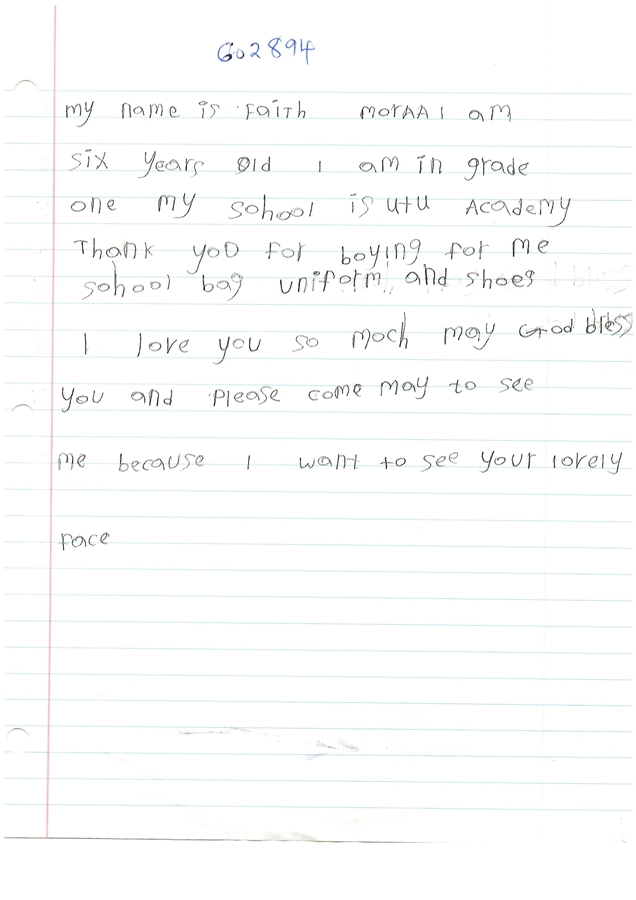 G02894
my name is Faith MorAA I am
six years old I am in grade
one my school is utu Academy
Thank yoo for boying for me
school bag uniform and shoes
I love you so moch may God bless
you and please come may to see
me because I want to see your lovely
face